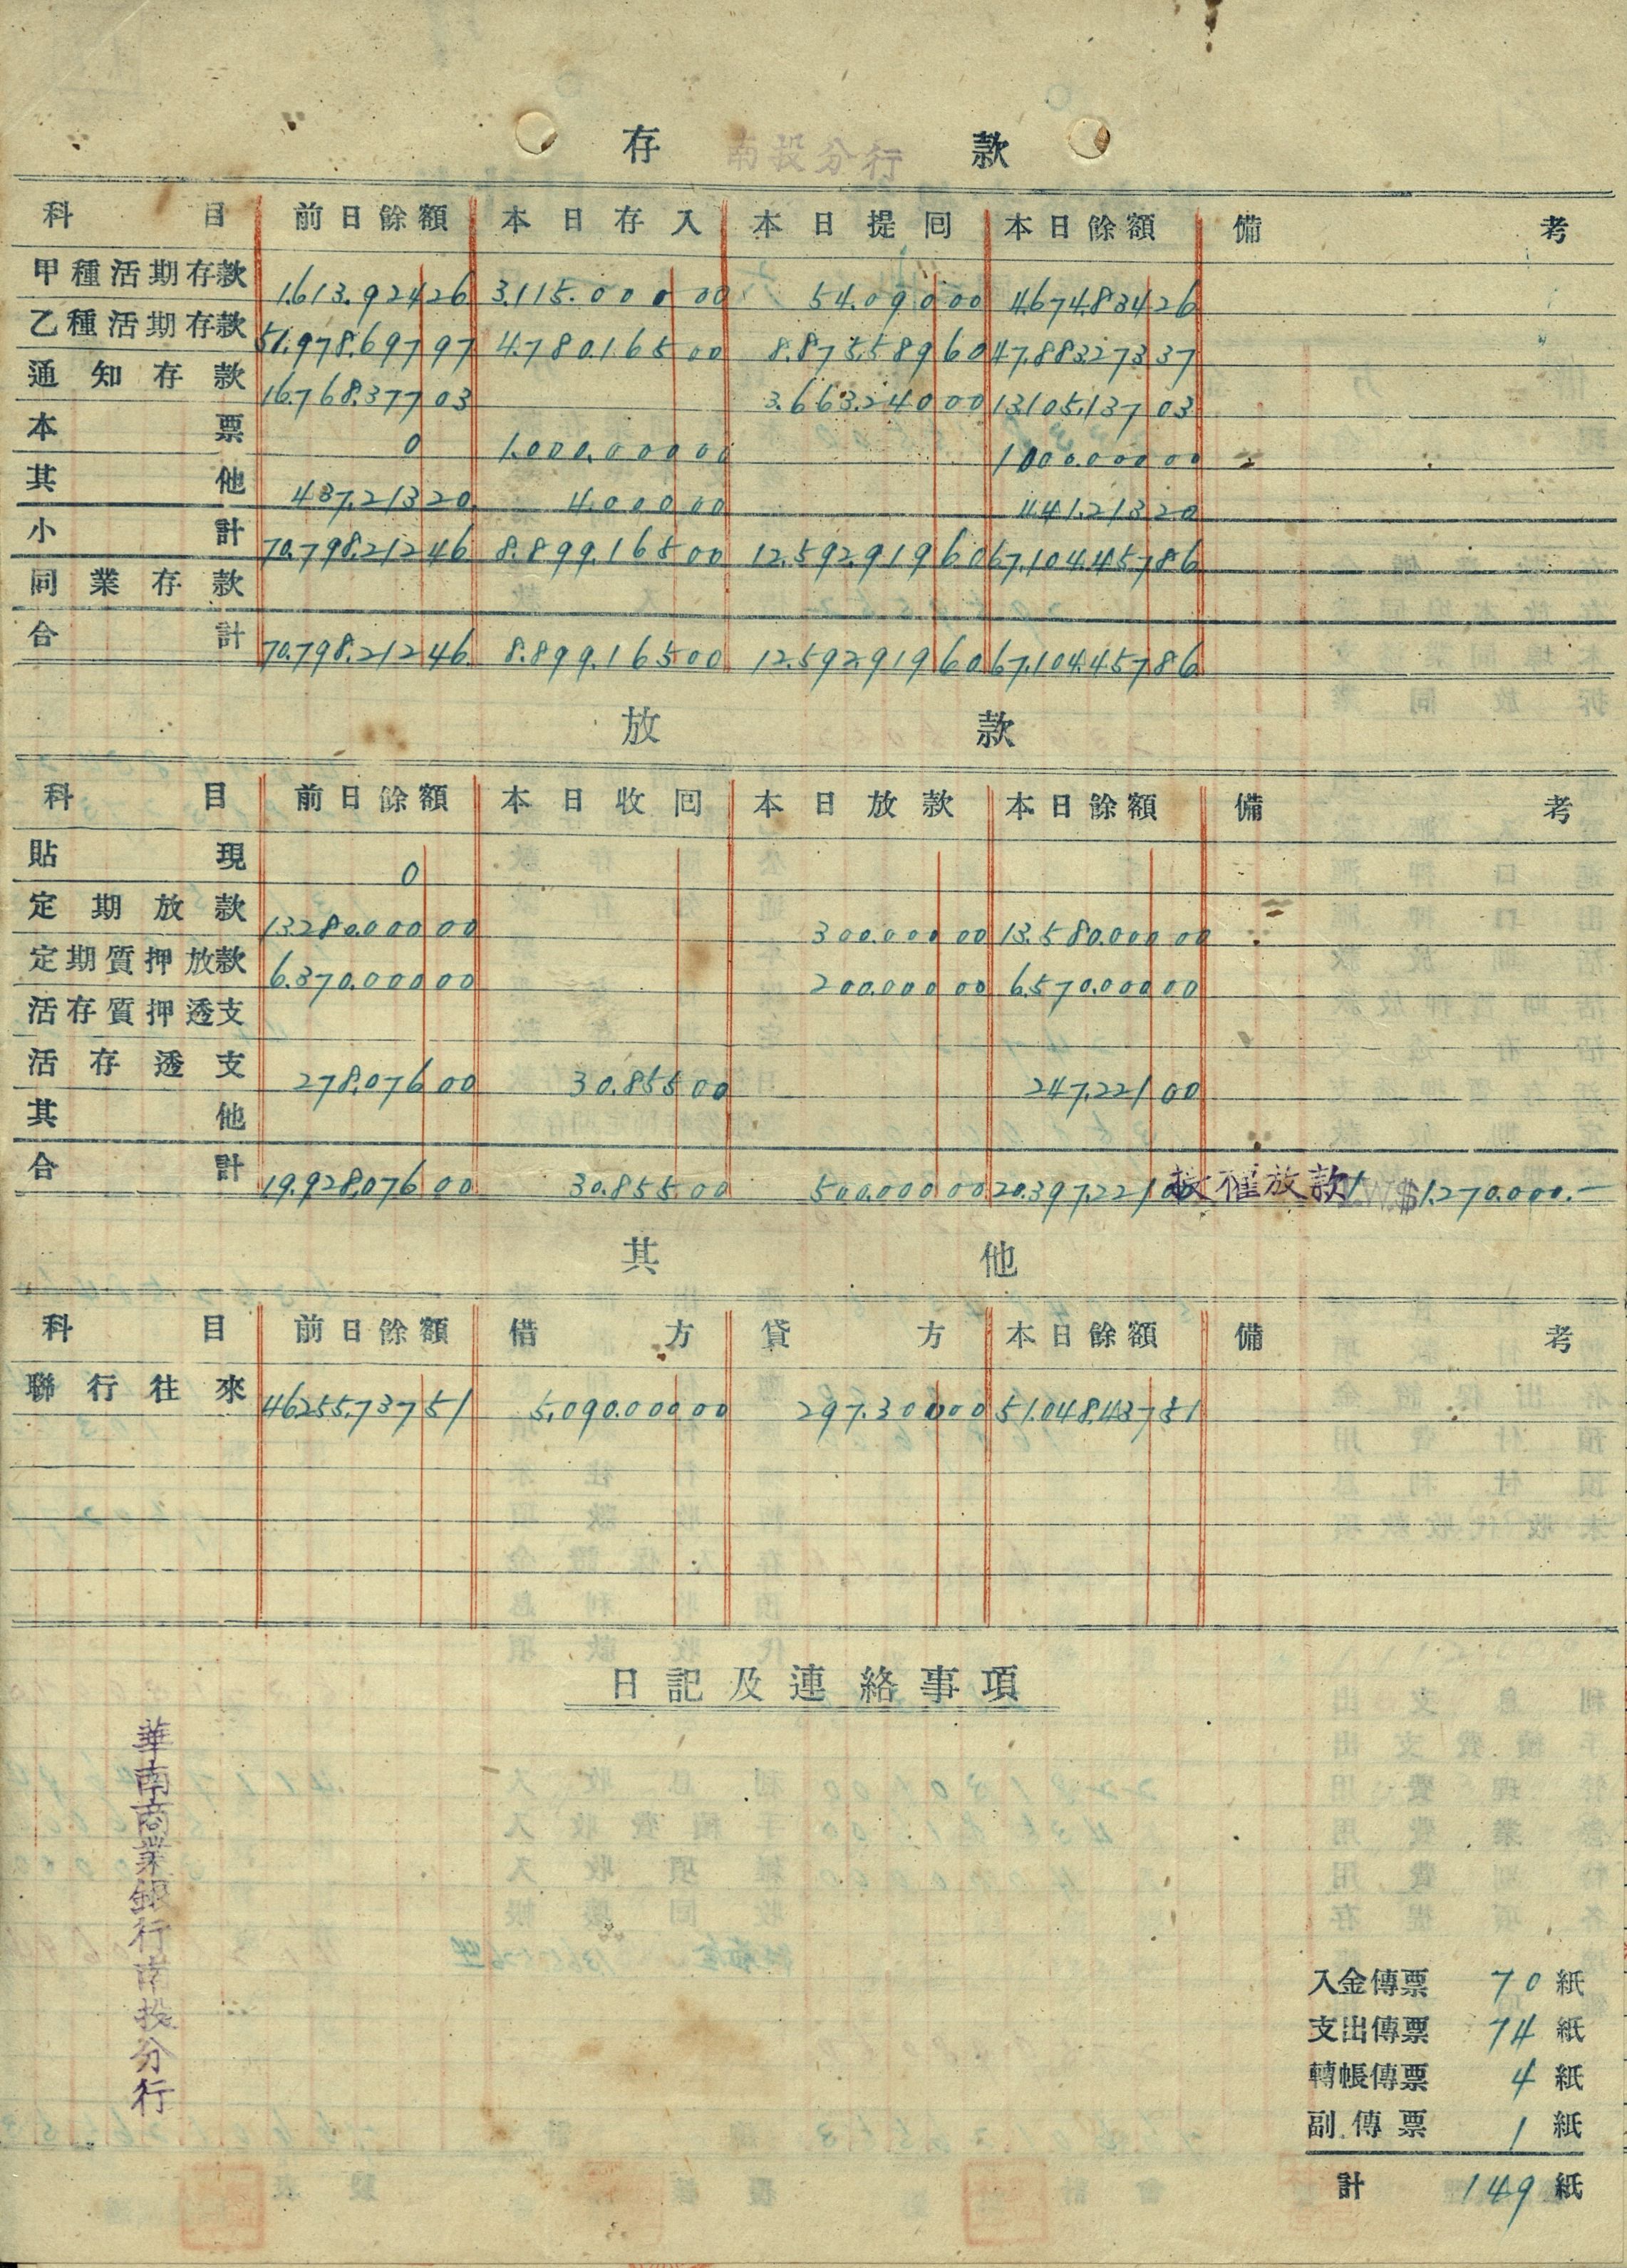 存 南投分行 款
科目 前日餘額 本日存入 本日提回 本日餘額 備考
甲種活期存款 1.613.924 26 3.115.000 00 54.090 00 4.674.834 26
乙種活期存款 51.978.697 97 4.780.165 00 8.875.589 60 47.883.273 37
通知存款 16.768.377 03 3.663.240 00 13.105.137 03
本票 0 1.000.000 00 1.000.000 00
其他 437.213 20 4.000 00 441.213 20
小計 70.798.212 46 8.899.165 00 12.592.919 60 67.104.457 86
同業存款
合計 70.798.212 46 8.899.165 00 12.592.919 60 67.104.457 86
放款
科目 前日餘額 本日收回 本日放款 本日餘額 備考
貼現 0
定期放款 13.280.000 00 300.000 00 13.580.000 00
定期質押放款 6.370.000 00 200.000 00 6.570.000 00
活存質押透支
活存透支 278.076 00 30.855 00 247.221 00
其他
合計 19.928.076 00 30.855 00 500.000 00 20.397.221 00 授權放款 $1.270.000.—
其他
科目 前日餘額 借方 貸方 本日餘額 備考
聯行往來 46.255.737 51 5.090.000 00 297.300 00 51.048.437 51
日記及連絡事項
華南商業銀行南投分行
入金傳票 70 紙
支出傳票 74 紙
轉帳傳票 4 紙
副傳票 1 紙
計 149 紙